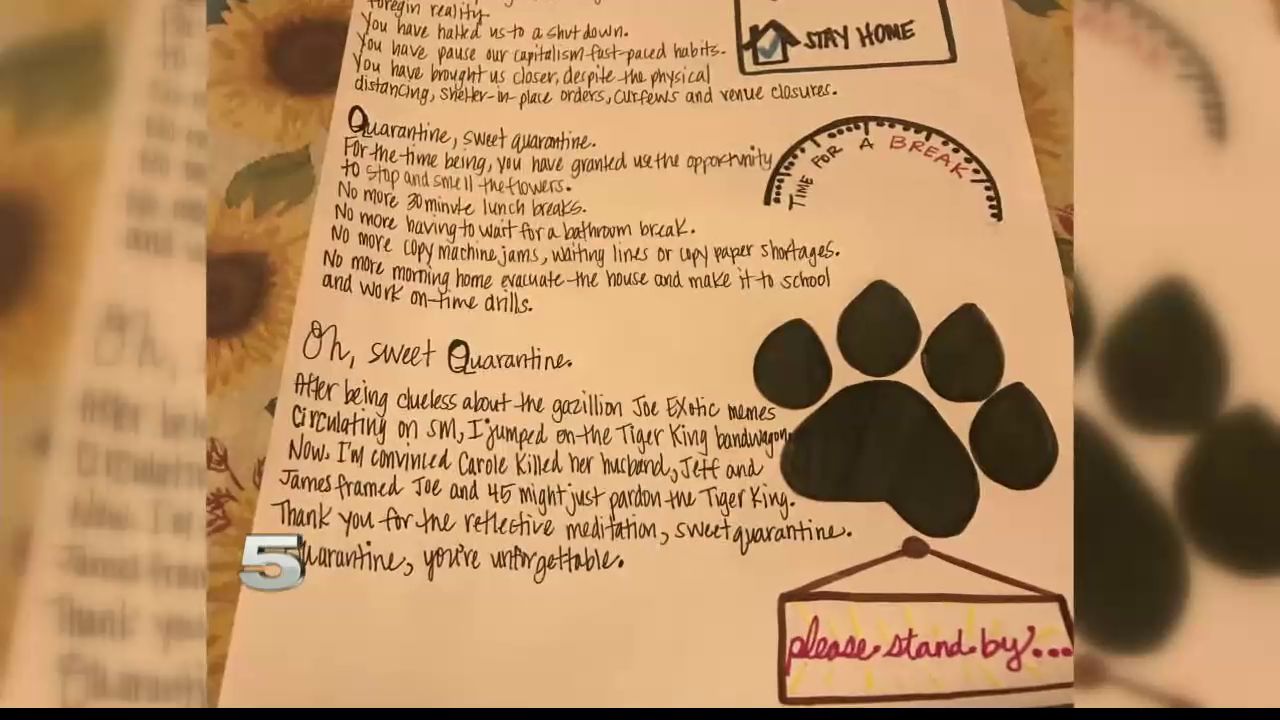 foregin reality.
You have halted us to a shut down.
You have pause our capitalism fast-paced habits.
You have brought us closer, despite the physical
distancing, shelter-in-place orders, curfews and venue closures.
STAY HOME
Quarantine, sweet quarantine.
For the time being, you have granted use the opportunity
to stop and smell the flowers.
No more 30 minute lunch breaks.
No more having to wait for a bathroom break.
No more copy machine jams, waiting lines or copy paper shortages.
No more morning home evacuate the house and make it to school
and work on-time drills.
TIME FOR A BREAK
Oh, sweet Quarantine.
After being clueless about the gazillion Joe Exotic memes
circulating on SM, I jumped on the Tiger King bandwagon.
Now, I'm convinced Carole killed her husband, Jeff and
James framed Joe and 45 might just pardon the Tiger King.
Thank you for the reflective meditation, sweet quarantine.
uarantine, you're unforgettable.
5
please stand by...